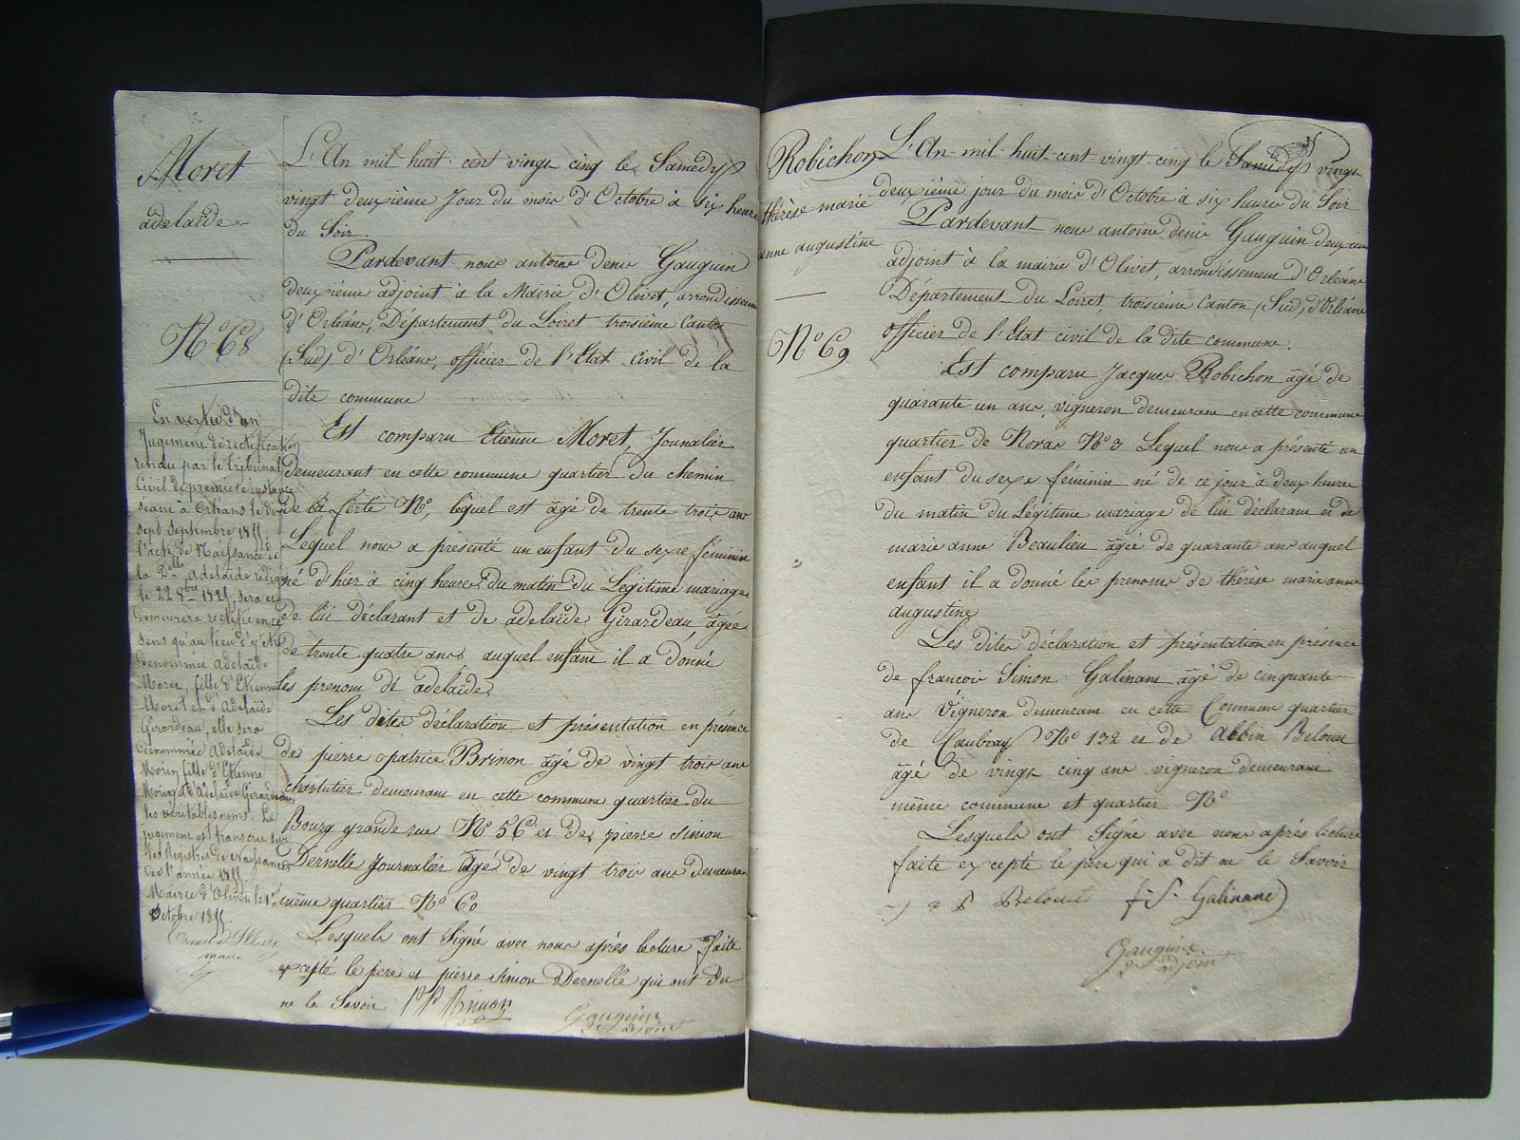 Moret
adelaïde
N° 68
En vertu d'un
Jugement de rectification
rendu par le tribunal
Civil de première instance
séant à Orléans le
sept Septembre
l'acte de Naissance de
la Dlle Adelaïde rédigé
le 22 8bre 1825, sera en
sens qu'au lieu d'y être
dénommée Adelaïde
Moret, fille d'Etienne
Moret et d'Adelaïde
Girardeau, elle sera
dénommée Adelaïde
fille d'Etienne
et d'Adelaïde
les véritables noms. Le
jugement est transcrit sur
les Registres de Naissances
de l'année
Mairie d'Olivet le 1er
Octobre
L'An mil huit cent vingt cinq le Samedy
vingt deuxième Jour du mois d'Octobre à six heures
du Soir.
Pardevant nous antoine denis Gauguin
deuxième adjoint à la Mairie d'Olivet, arrondissement
d'Orléans, Département du Loiret troisième Canton
(Sud) d'Orléans, officier de l'Etat Civil de la
dite commune
Est comparu Etienne Moret, Journalier
demeurant en cette commune quartier du chemin
de la ferté N°, lequel est âgé de trente trois ans
Lequel nous a présenté un enfant du sexe féminin
né d'hier à cinq heures du matin du Légitime mariage
de lui déclarant et de adelaïde Girardeau âgée
de trente quatre ans auquel enfant il a donné
les prenom de adelaïde
Les dites déclaration et présentation en présence
de pierre patrice Brinon âgé de vingt trois ans
charcutier demeurant en cette commune quartier du
Bourg grande rue N° 56 et de pierre Simon
Dernelle Journalier âgé de vingt trois ans demeurant
même quartier N° 60
Lesquels ont Signé avec nous après lecture faite
excepté le père et pierre Simon Dernelle qui ont dit
ne le Savoir P P Brinon
Gauguin
adjoint
Robichon
thérèse marie
anne augustine
N° 69
L'An mil huit cent vingt cinq le Samedy vingt
deuxième jour du mois d'Octobre à six heures du Soir
Pardevant nous antoine denis Gauguin deuxième
adjoint à la mairie d'Olivet, arrondissement d'Orléans
Département du Loiret, troisième Canton (Sud) d'Orléans
officier de l'Etat civil de la dite commune.
Est comparu Jacques Robichon âgé de
quarante un ans, vigneron demeurant en cette commune
quartier de Noras N° 3 Lequel nous a présenté un
enfant du sexe féminin né de ce jour à deux heures
du matin du Légitime mariage de lui déclarant et de
marie anne Beaulieu âgée de quarante ans auquel
enfant il a donné les prenoms de thérèse marie anne
augustine
Les dites déclaration et présentation en présence
de françois Simon Galinane âgé de cinquante
ans Vigneron demeurant en cette Commune quartier
de Caubray N° 132 et de Albin Beloue
âgé de vingt cinq ans vigneron demeurant
même commune et quartier N°
Lesquels ont Signé avec nous après lecture
faite excepté le père qui a dit ne le Savoir
f. S. Galinane
Gauguin
adjoint